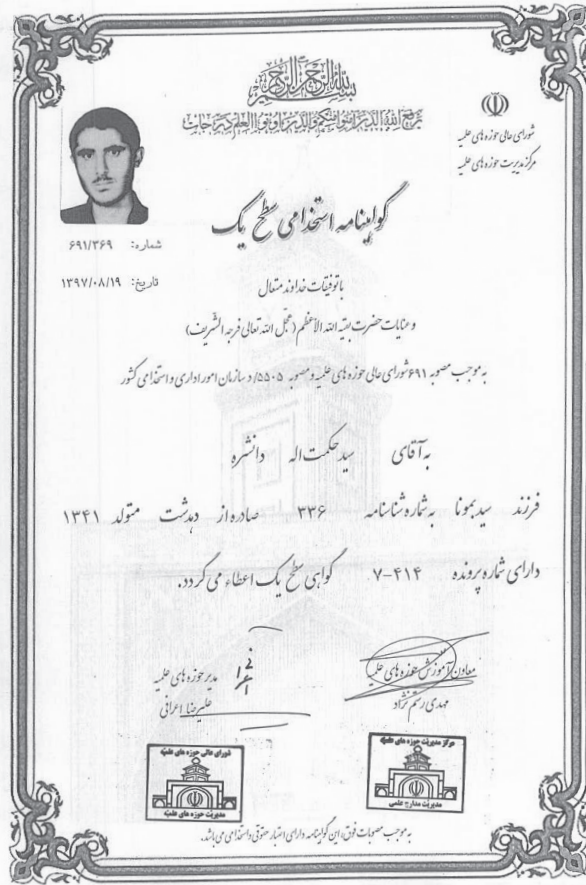 بسم الله الرحمن الرحیم
یرفع الله الذین آمنوا منکم والذین اوتوا العلم درجات
شورای عالی حوزه های علمیه
مرکز مدیریت حوزه های علمیه
گواهینامه استخدامی سطح یک
شماره: ۶۹۱/۳۶۹
تاریخ: ۱۳۹۷/۰۸/۱۹
با توفیقات خداوند متعال
و عنایات حضرت بقیه الله الأعظم (عجل الله تعالی فرجه الشریف)
به موجب مصوبه ۶۹۱ شورای عالی حوزه های علمیه و مصوبه ۵۵۰۵/د سازمان امور اداری و استخدامی کشور
به آقای سید حکمت اله دانشره
فرزند سید بمونا به شماره شناسنامه ۳۳۶ صادره از دهدشت متولد ۱۳۴۱
دارای شماره پرونده ۷-۴۱۴ گواهی سطح یک اعطاء می گردد.
معاون آموزش حوزه های علمیه
مهدی رستم نژاد
مدیر حوزه های علمیه
علیرضا اعرافی
مرکز مدیریت حوزه های علمیه
مدیریت مدارج علمی
شورای عالی حوزه های علمیه
مدیریت حوزه های علمیه
به موجب مصوبات فوق، این گواهینامه دارای اعتبار حقوقی و استخدامی می باشد.